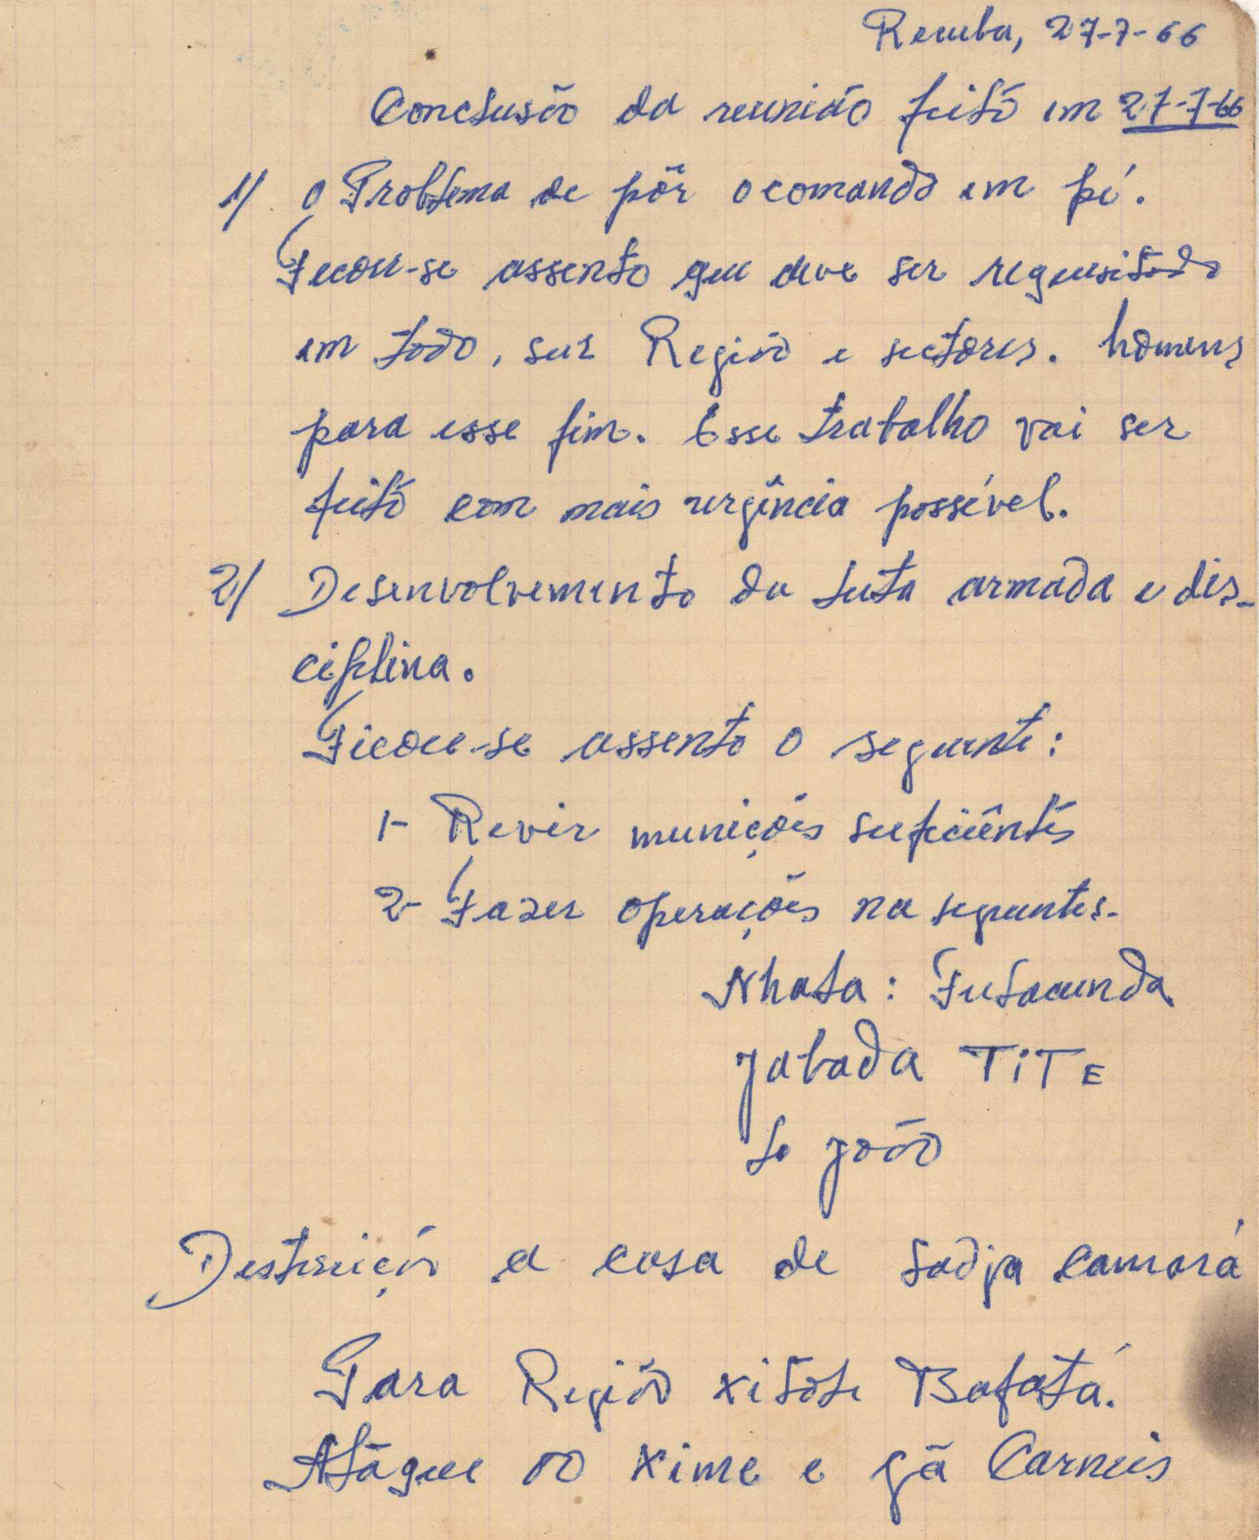 Recuba, 27-7-66
Conclusão da reunião feitó em 27-7-66
1/ O Problema de pôr o comando em pé.
Ficou-se assento que deve ser requesitado
em todo, sus Região e sectores. homens
para esse fim. Esse trabalho vai ser
feitó com mais urgência possível.
2/ Desenvolvemento da luta armada e dis-
ciplina.
Ficou-se assento o seguente:
1- Rever munições suficiêntés
2- Fazer operações na seguentes.
Nhala: Fulacunda
Jabada TiTE
S. João
Destruição a casa de Sadja Camará
Para Região xitole Bafatá.
Atãque ao Xime e gã Carneis